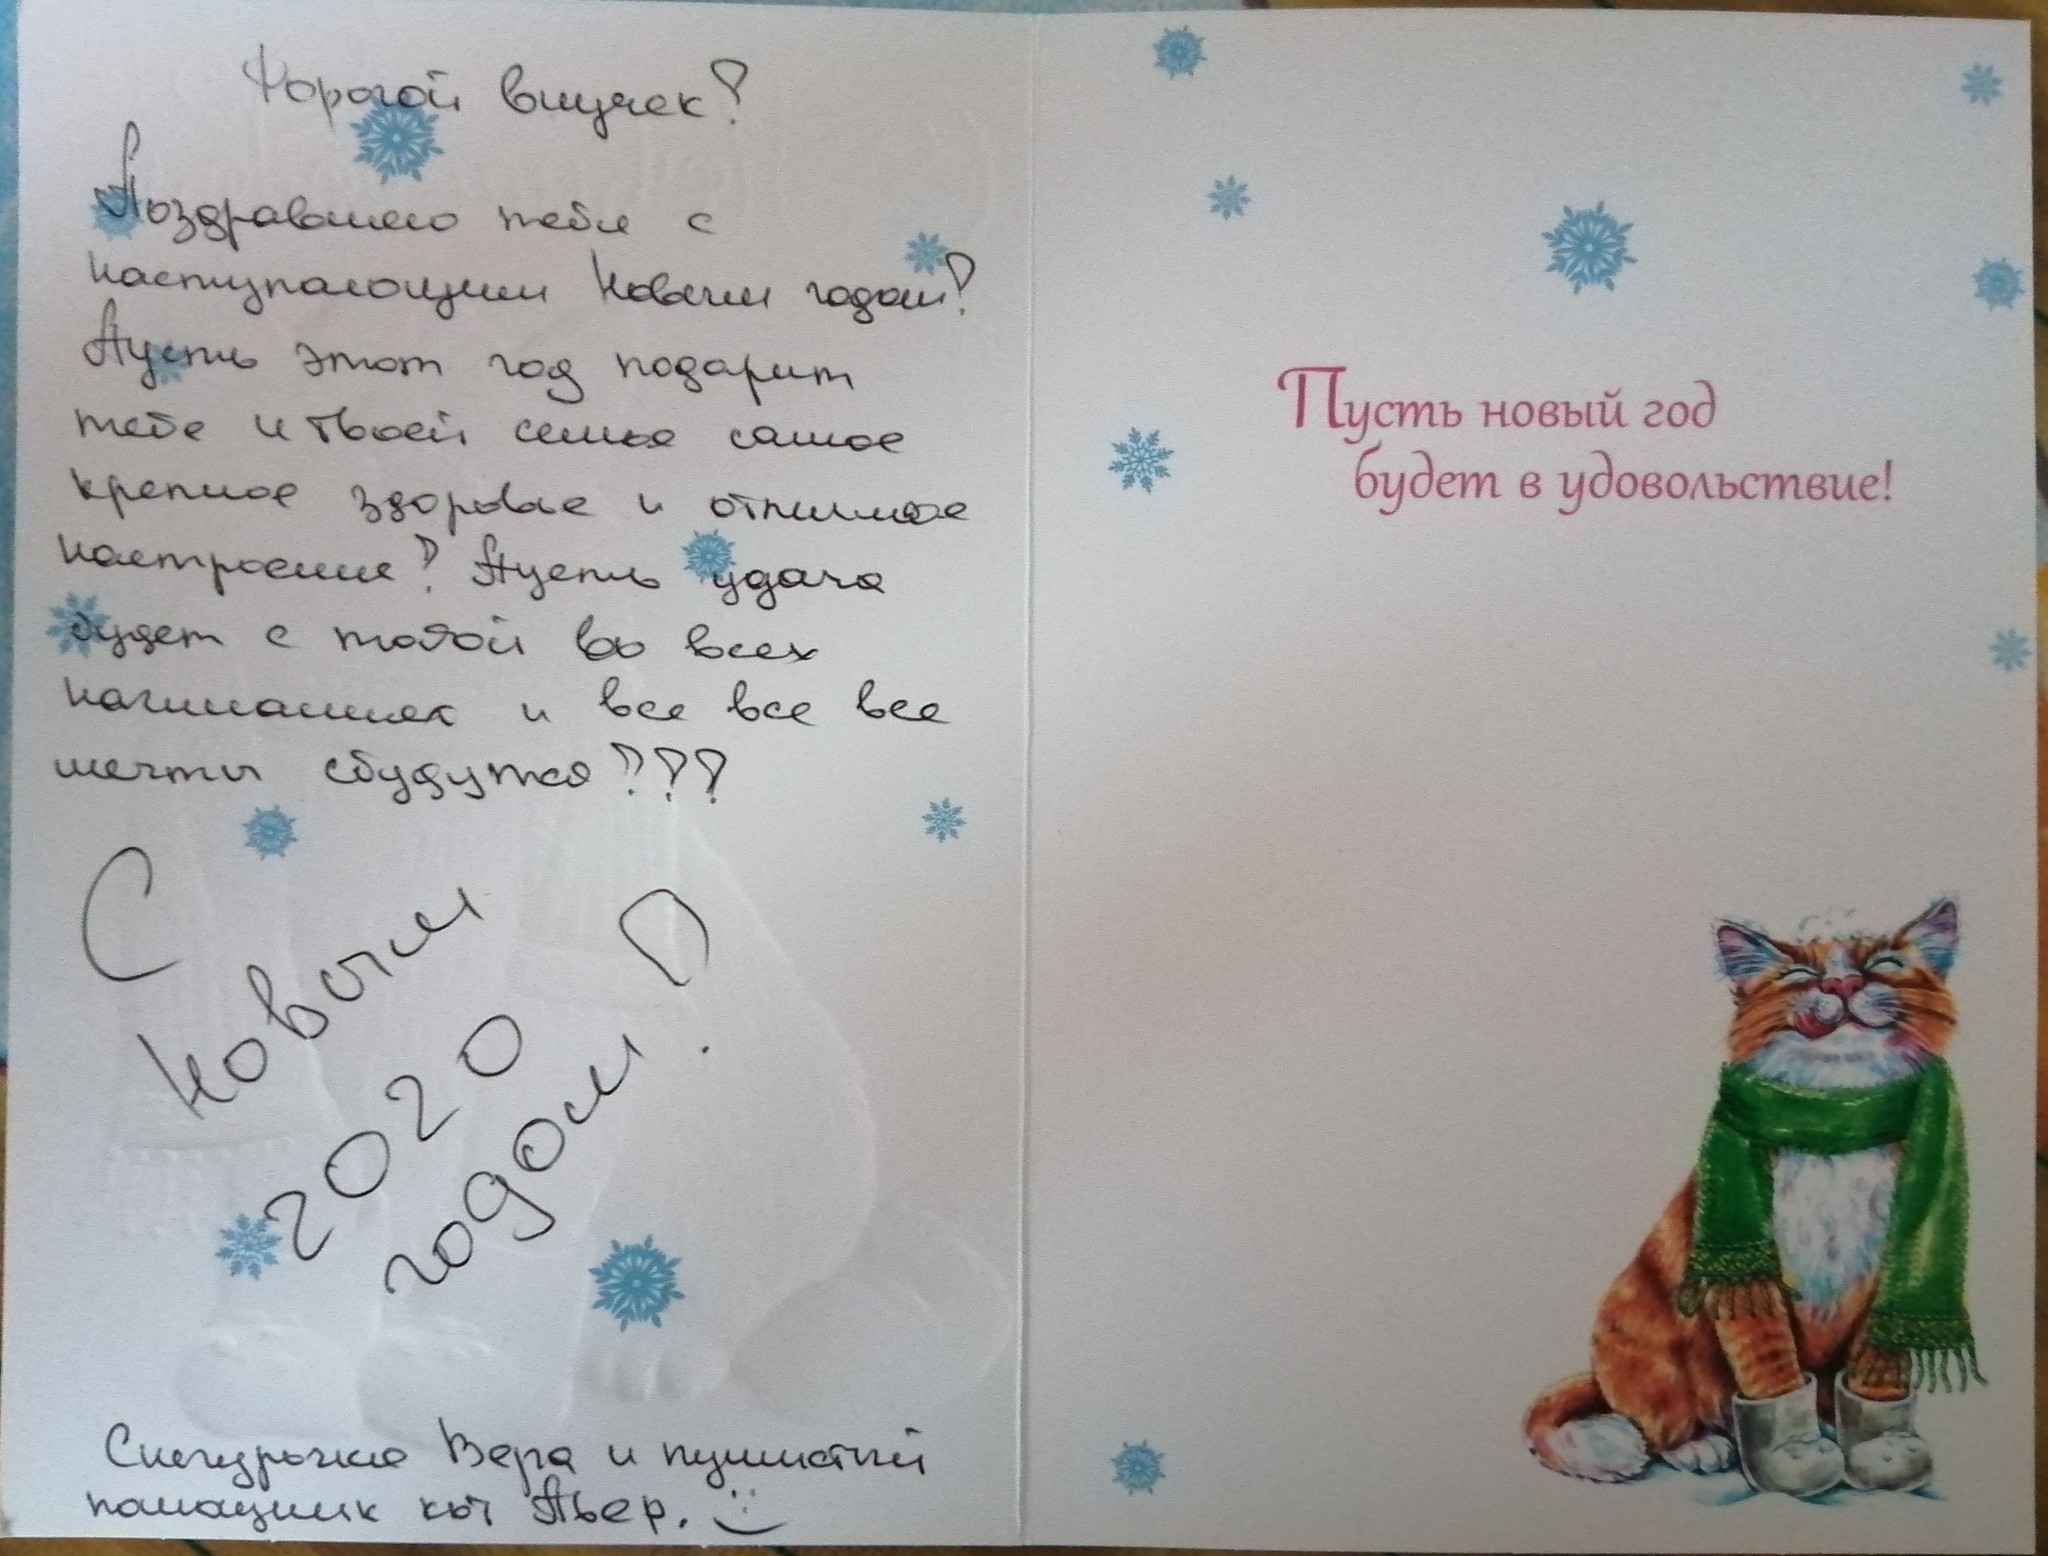 Дорогой внучек!
Поздравляю тебя с
наступающим Новым годом!
Пусть этот год подарит
тебе и твоей семье самое
крепкое здоровье и отличное
настроение! Пусть удача
будет с тобой во всех
начинаниях и все все все
мечты сбудутся!!!
С
Новым
2020
годом!
Снегурочка Вера и пушистый
помощник кот Пьер. :)
Пусть новый год
будет в удовольствие!